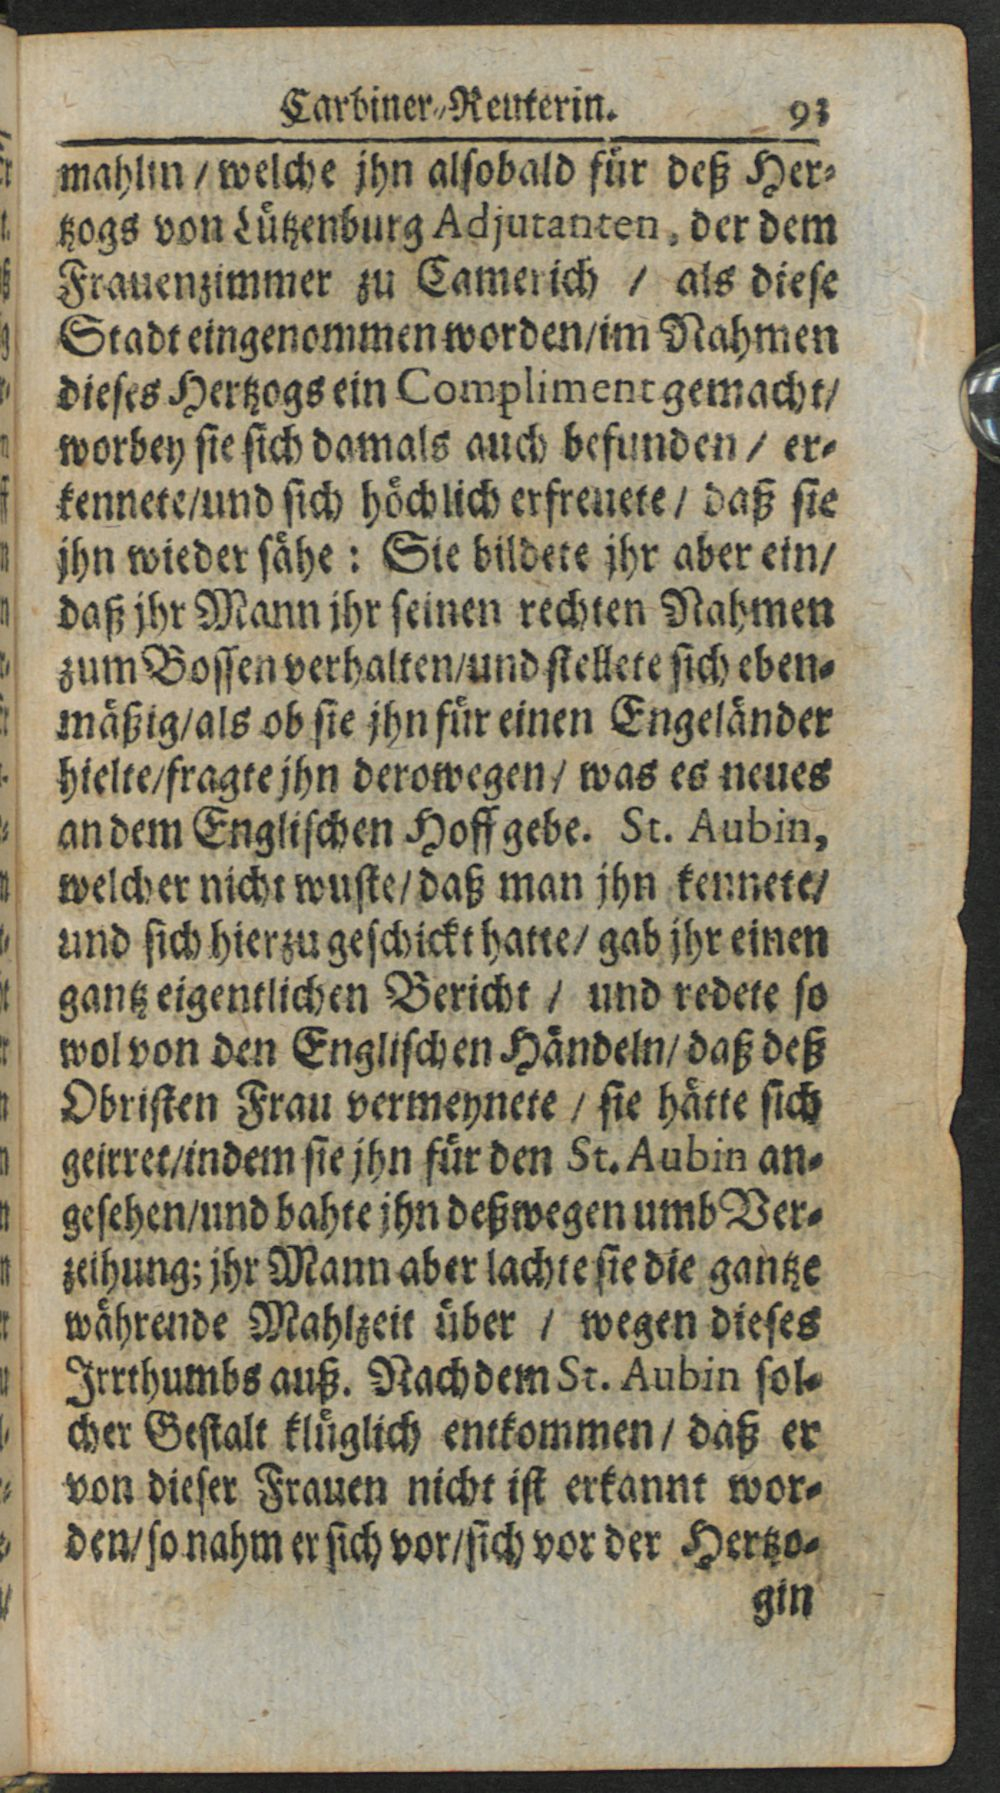 Carbiner-Reuterin. 93
mahlin / welche jhn alsobald für deß Her-
tzogs von Lützenburg Adjutanten, der dem
Frauenzimmer zu Camerich / als diese
Stadt eingenommen worden/im Nahmen
dieses Hertzogs ein Compliment gemacht/
worbey sie sich damals auch befunden / er-
kennete/und sich höchlich erfreuete / daß sie
jhn wieder sähe : Sie bildete jhr aber ein/
daß jhr Mann jhr seinen rechten Nahmen
zum Bossen verhalten/und stellete sich eben-
mäßig/als ob sie jhn für einen Engeländer
hielte/fragte jhn derowegen / was es neues
an dem Englischen Hoff gebe. St. Aubin,
welcher nicht wuste/ daß man jhn kennete/
und sich hierzu geschickt hatte/ gab jhr einen
gantz eigentlichen Bericht / und redete so
wol von den Englischen Händeln/ daß deß
Obristen Frau vermeynete / sie hätte sich
geirret/indem sie jhn für den St. Aubin an-
gesehen/und bahte jhn deßwegen umb Ver-
zeihung; jhr Mann aber lachte sie die gantze
währende Mahlzeit über / wegen dieses
Irrthumbs auß. Nachdem St. Aubin sol-
cher Gestalt klüglich entkommen / daß er
von dieser Frauen nicht ist erkannt wor-
den/ so nahm er sich vor/sich vor der Hertzo-
gin